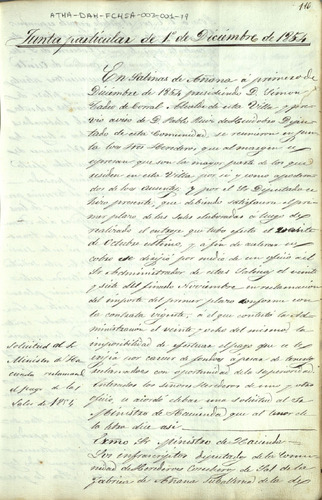 ATHA-DAH-FCHSA-007-001-19
116
Junta particular de 1º de Diciembre de 1854
En Salinas de Añana á primero de
Diciembre de 1854 presidiendo D. Simon
de Corral Alcalde de esta Villa y pre-
vio aviso de D. Pablo Ruiz de Diputa-
do de esta Comunidad se reunieron en jun-
ta los Sres Herederos que al margen se
espresan que son la mayor parte de los que
residen en esta Villa por si y como apodera-
dos de los ausentes, y por el Sr Diputado se
hizo presente, que debiendo satisfacerse el pri-
mer plazo de las Sales elaboradas
realizado el entroje que tubo efecto el
de Octubre ultimo, y a fin de
se dirijió por medio de un oficio al
Sr Administrador de estas Salinas el veinte
y seis del finado Noviembre en reclamacion
del importe del primer plazo conforme con
la contrata vigente, á el que contestó la Ad-
ministracion el veinte y ocho del mismo la
imposibilidad de efectuar el pago que se
por carecer de fondos apesar de tenerlo
con oportunidad de la superioridad
Enterados los Señores Herederos de uno y otro
oficio, se acordó elebar una solicitud al Sr
Ministro de Hacienda, que al tenor de
la letra dice asi
Solicitud al Sr
Ministro de Ha-
cienda reclamando
el pago de las
Sales de 1854
Exmo Sr Ministro de Hacienda
Los infrascritos Diputados de la Comu-
nidad de Herederos de Sal de la
fabrica de Añana de la de